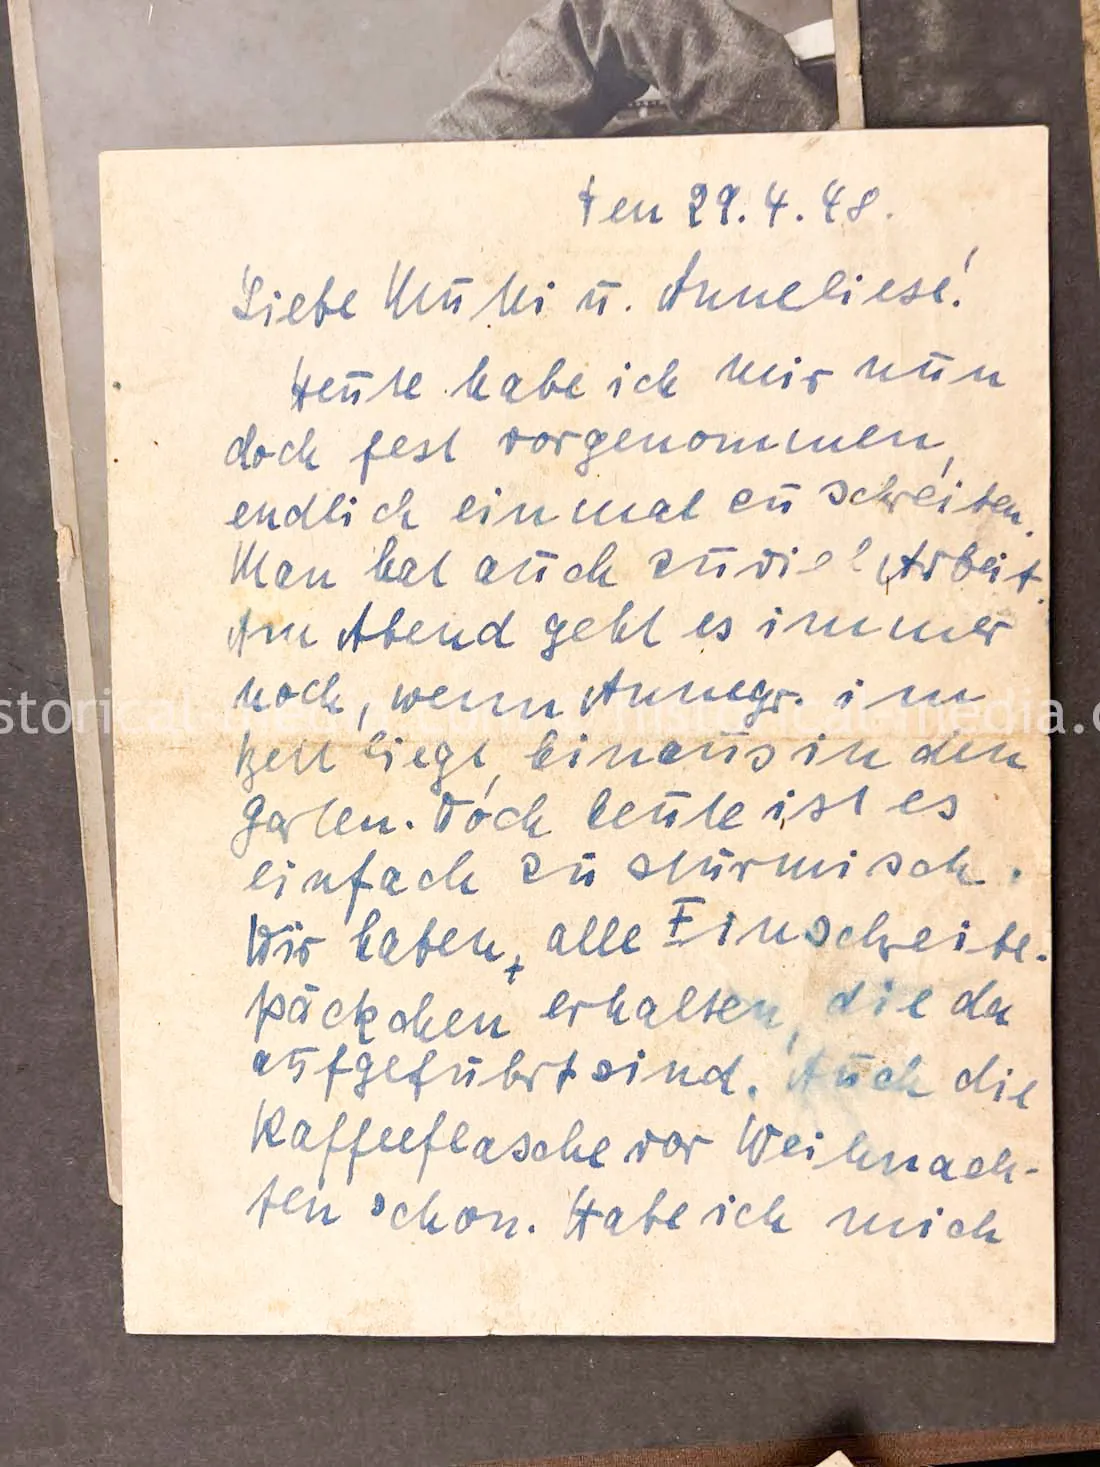 den 29.4.48.
Liebe Mutti u. Anneliese!
Heute habe ich mir nun
doch fest vorgenommen,
endlich einmal zu schreiben.
Man hat auch zuviel Arbeit.
Am Abend geht es immer
noch, wenn Annegr. im
Bett liegt, hinaus in den
Garten. Doch heute ist es
einfach zu stürmisch.
Wir haben, alle Einschreibe-
päckchen erhalten, die da
aufgeführt sind. Auch die
Kaffeeflasche vor Weihnach-
ten schon. Habe ich mich